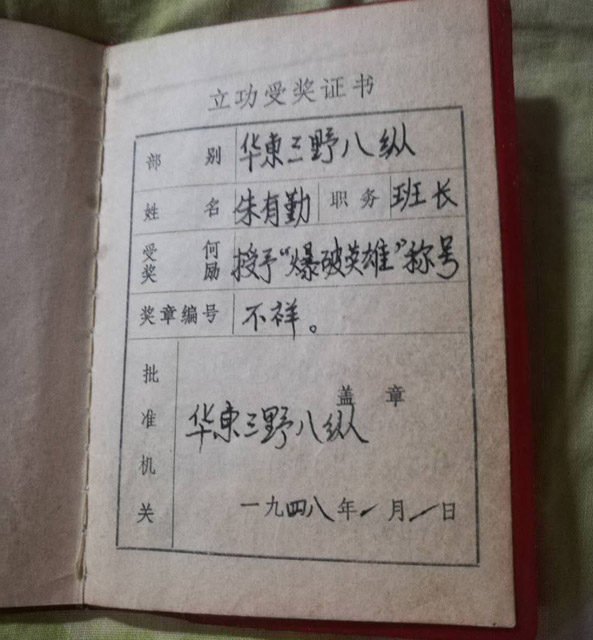 立功受奖证书
部别 华东三野八纵
姓名 朱有勤 职务 班长
受何奖励 授予“爆破英雄”称号
奖章编号 不祥。
批准机关 盖章
华东三野八纵
一九四八年一月一日